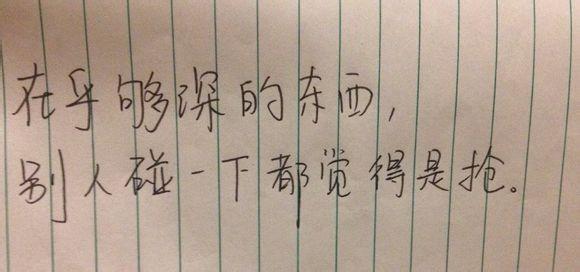 在乎够深的东西，
别人碰一下都觉得是抢。